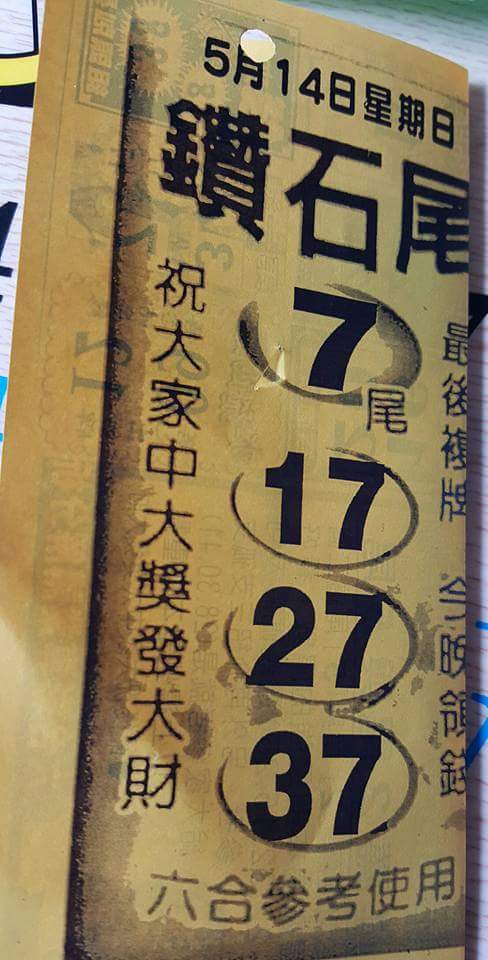 5月14日星期日
鑽石尾
7尾
17
27
37
最後複牌 今晚領錢
祝大家中大獎發大財
六合參考使用